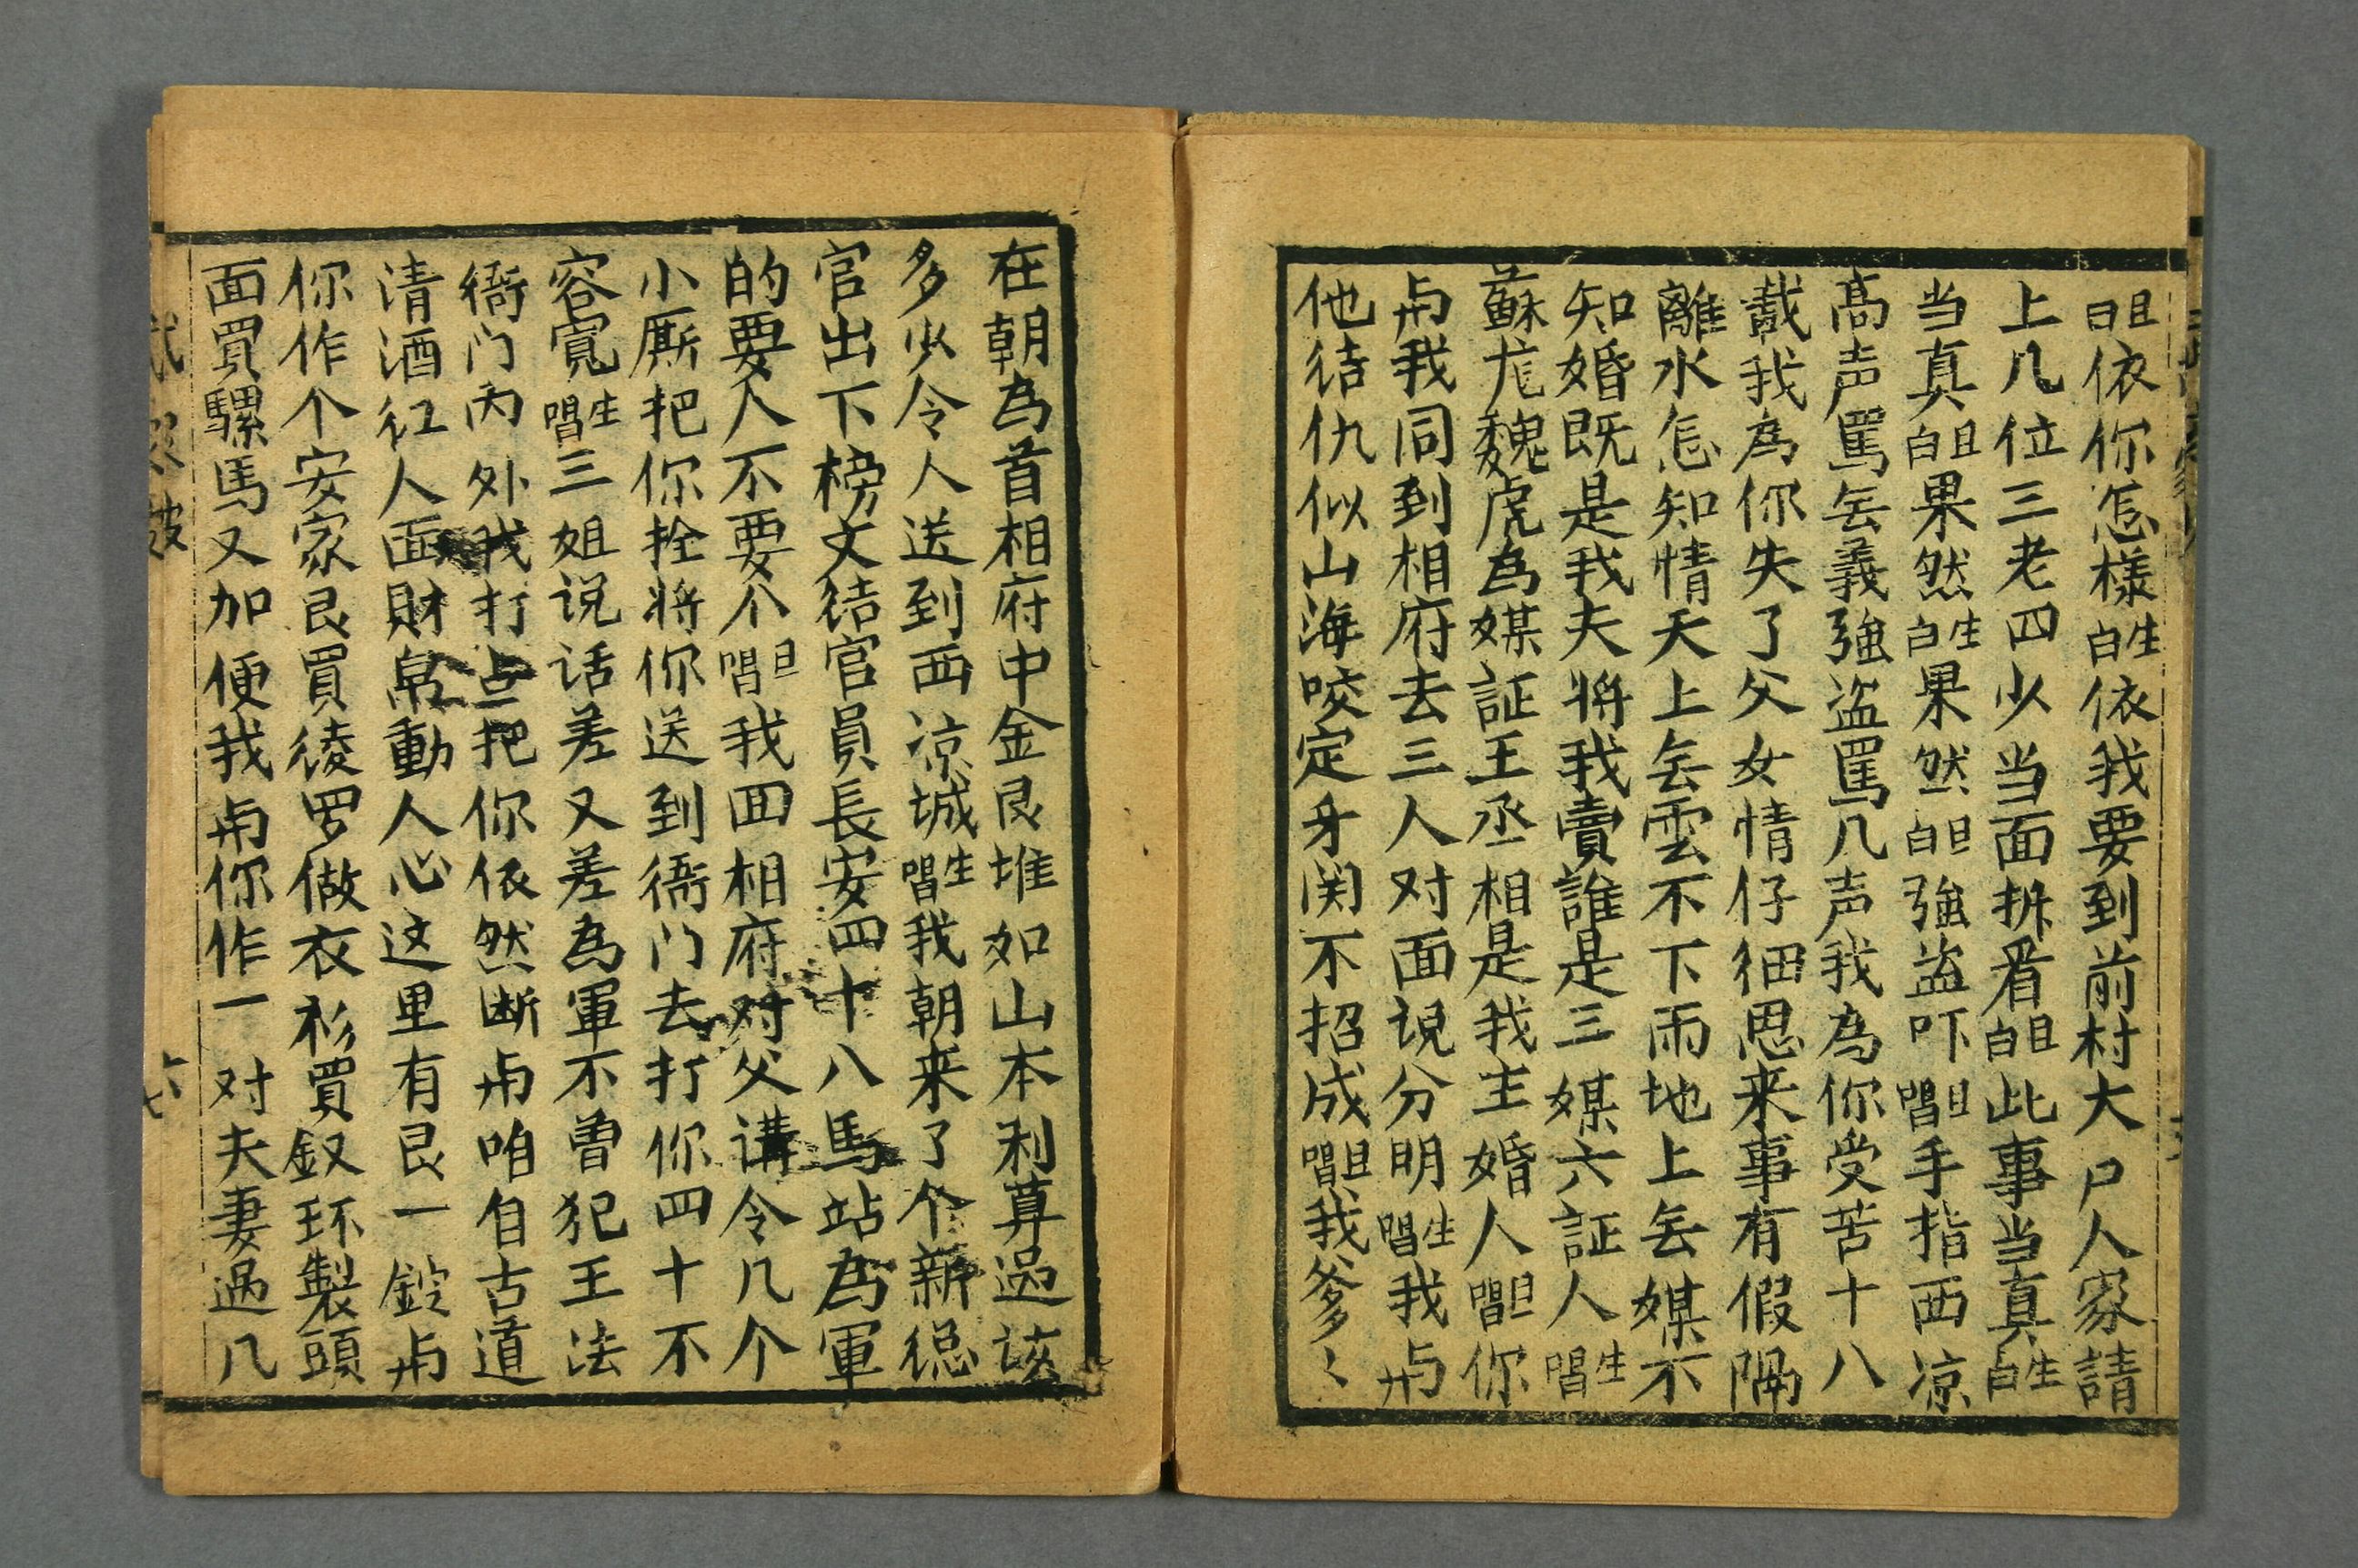 旦白依你怎樣生白依我要到前村大户人家請
上几位三老四少当面拆看旦白此事当真生白
当真旦白果然生白果然旦白強盗吓旦唱手指西凉
髙声罵无義強盗罵几声我為你受苦十八
載我為你失了父女情仔细思来事有假隔
離水怎知情天上无雲不下雨地上无媒不
知婚既是我夫将我賣誰是三媒六証人生唱
蘇尨魏虎為媒証王丞相是我主婚人旦唱你
与我同到相府去三人对面说分明生唱我与
他结仇似山海咬定牙関不招成旦唱我爹〻
在朝為首相府中金艮堆如山本利算過该
多少令人送到西凉城生唱我朝来了个新总
官出下榜文结官員長安四十八馬站為軍
的要人不要个旦唱我回相府对父講令几个
小厮把你拴将你送到衙门去打你四十不
容寬生唱三姐说话差又差為軍不曾犯王法
衙门内外我打点把你依然断与咱自古道
清酒红人面財帛動人心这里有艮一錠与
你作个安家艮買绫罗做衣衫買釵环製頭
面買騾馬又加便我与你作一对夫妻過几